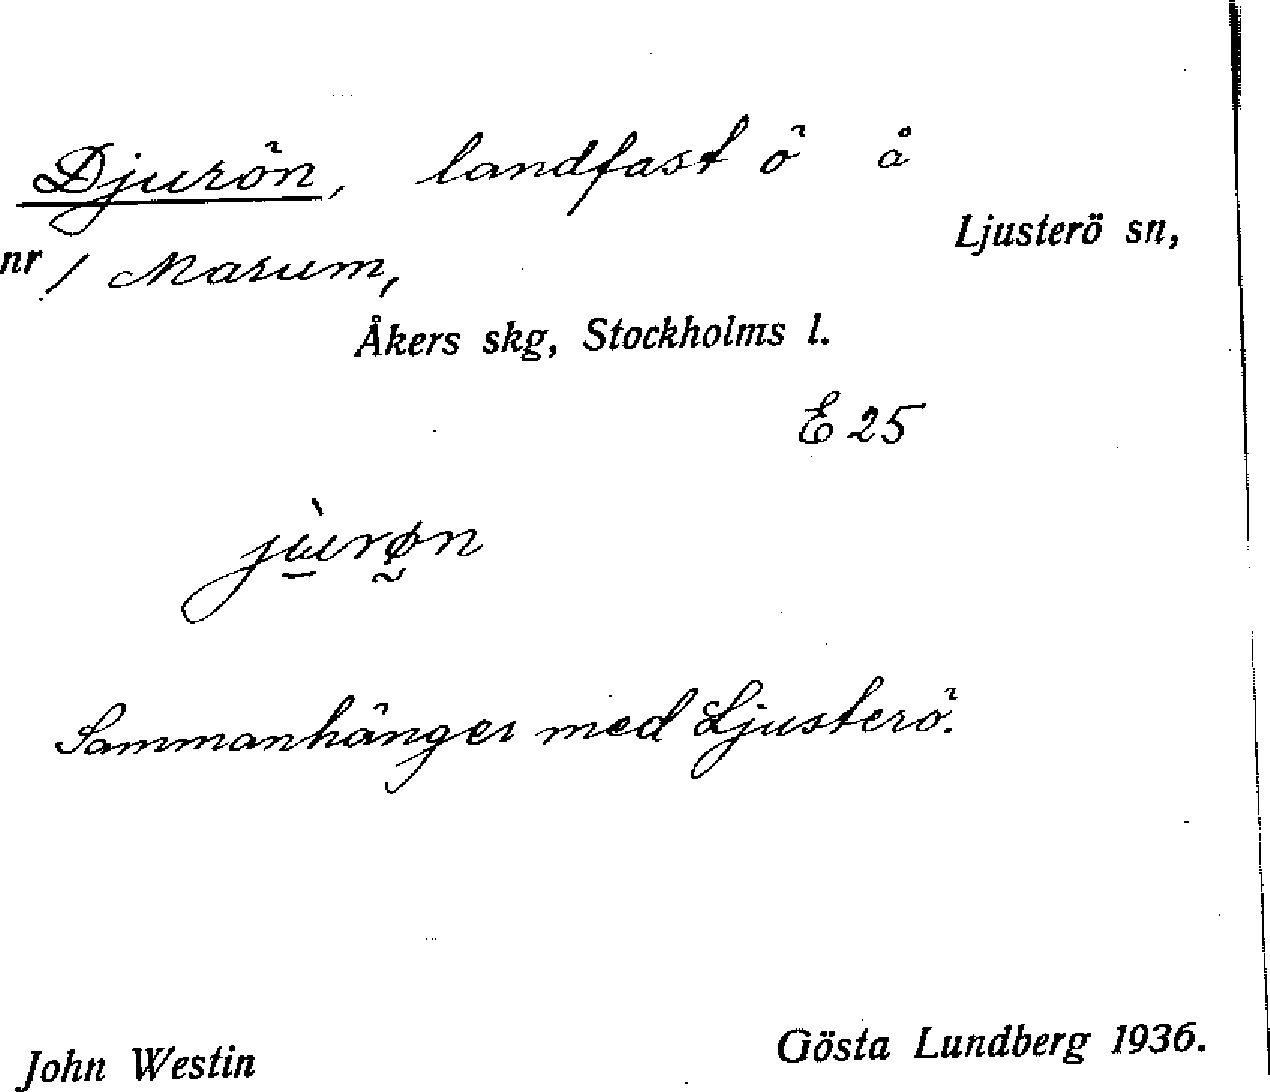 Djurön, landfast ö å
Ljusterö sn,
nr 1 Marum,
Åkers skg, Stockholms l.
E 25
jùrøn
Sammanhänger med Ljusterö.
John Westin
Gösta Lundberg 1936.